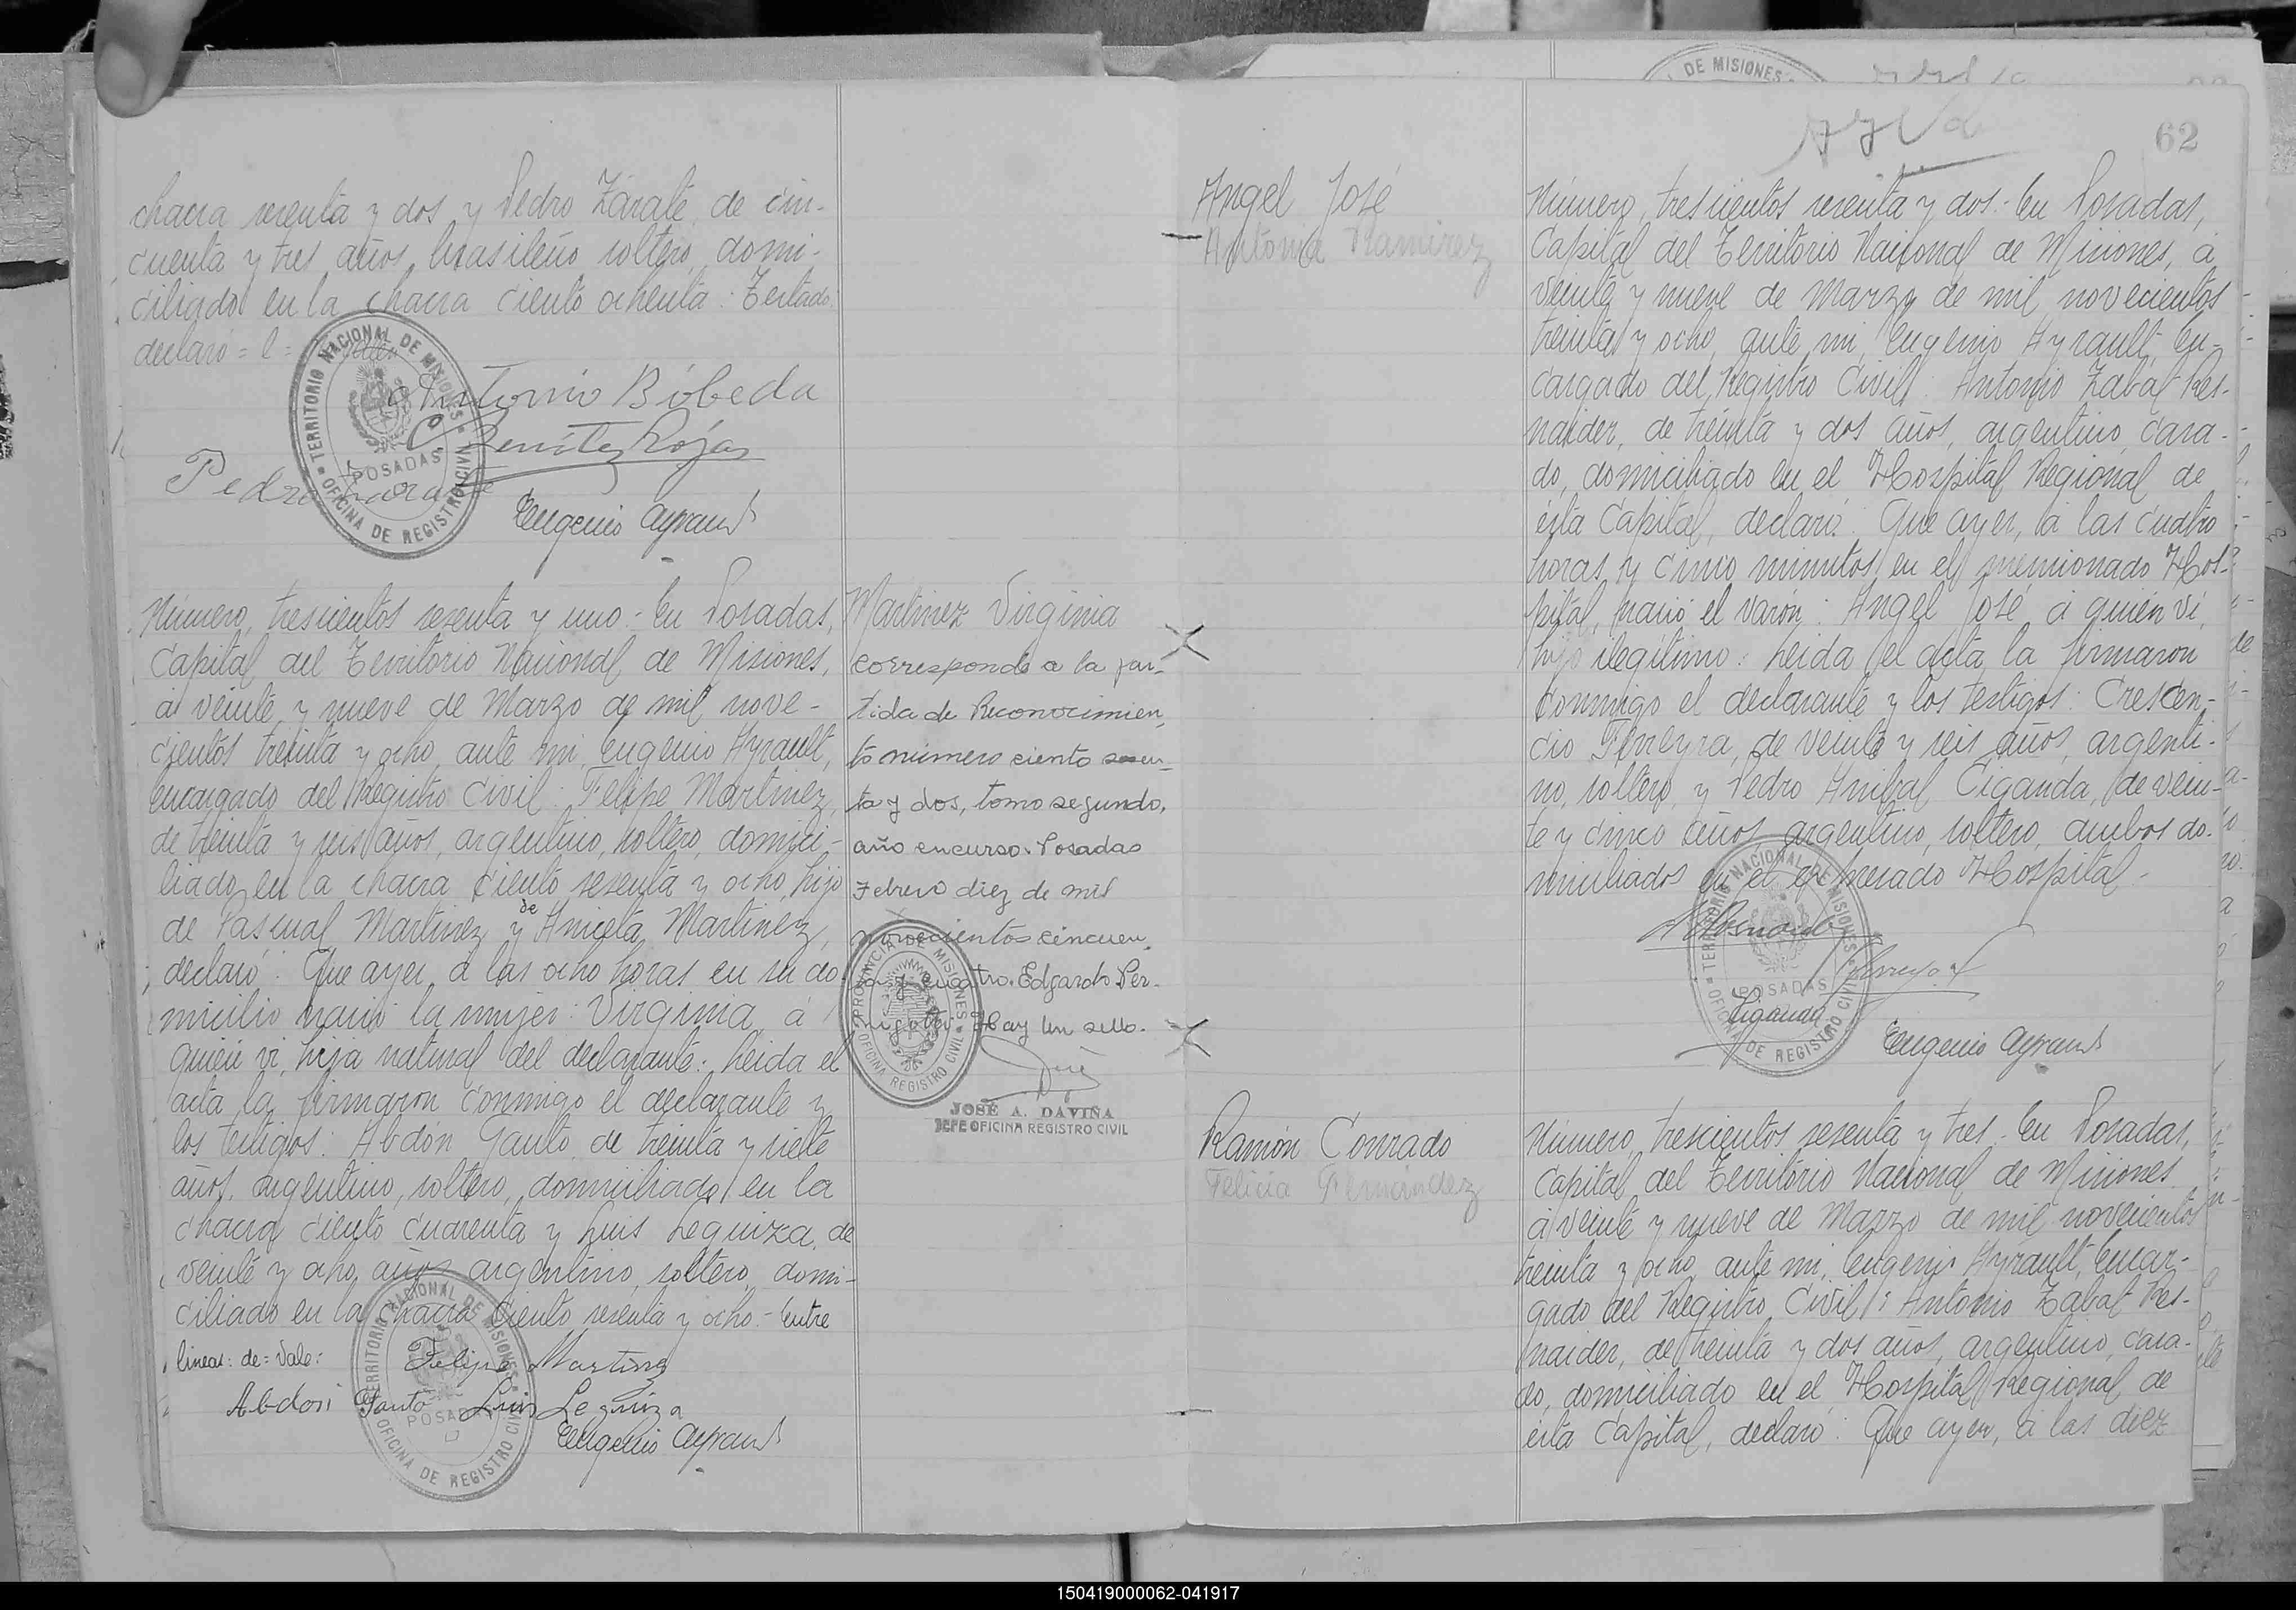 chacra sesenta y dos y Pedro Zárate, de cin-
cuenta y tres años, brasileño, soltero, domi-
ciliado en la chacra ciento ochenta: Testado:
declaró = l =
Antonio Bóbeda
C Benitez Rojas
Pedro Zarate
Eugenio Ayrault
TERRITORIO NACIONAL DE MISIONES
POSADAS
OFICINA DE REGISTRO CIVIL
Número, trescientos sesenta y uno.- En Posadas,
Capital del Territorio Nacional de Misiones,
á veinte y nueve de Marzo de mil nove-
cientos treinta y ocho, ante mi, Eugenio Ayrault,
Encargado del Registro Civil: Felipe Martinez,
de treinta y seis años, argentino, soltero, domici-
liado en la chacra ciento sesenta y ocho, hijo
de Pascual Martinez y de Aniceta Martinez,
declaró: Que ayer, á las ocho horas en su do-
micilio nació la mujer: Virginia, á
quién vi, hija natural del declarante: Leida el
acta la firmaron conmigo el declarante y
los testigos: Abdón Gauto, de treinta y siete
años, argentino, soltero, domiciliado en la
chacra ciento cuarenta y Luis Leguiza, de
veinte y ocho años, argentino, soltero, domi-
ciliado en la chacra ciento sesenta y ocho.- Entre
lineas: de = Vale:
Felipe Martinez
Abdon Gauto Luis Leguiza
Eugenio Ayrault
TERRITORIO NACIONAL DE MISIONES
POSADAS
OFICINA DE REGISTRO CIVIL
Martinez Virginia
corresponde a la par-
tida de Reconocimien-
to número ciento sesen-
ta y dos, tomo segundo,
año encurso. Posadas
Febrero diez de mil
novecientos cincuen-
ta y cuatro. Edgardo Per-
Hay un sello.
PROVINCIA DE MISIONES
OFICINA REGISTRO CIVIL
JOSÉ A. DAVIÑA
JEFE OFICINA REGISTRO CIVIL
DE MISIONES
62
Angel José
Antonia Ramirez
Número, trescientos sesenta y dos.- En Posadas,
Capital del Territorio Nacional de Misiones, á
veinte y nueve de Marzo de mil novecientos
treinta y ocho, ante mi, Eugenio Ayrault, En-
cargado del Registro Civil: Antonio Zabat Res-
naider, de treinta y dos años, argentino, casa-
do, domiciliado en el Hospital Regional de
ésta Capital, declaró: Que ayer, á las cuatro
horas y cinco minutos en el mencionado Hos-
pital, nació el varón: Angel José, á quién vi,
hijo ilegítimo: Leida el acta la firmaron
conmigo el declarante y los testigos: Crescen-
cio Ferreyra, de veinte y seis años, argenti-
no, soltero, y Pedro Anibal Ciganda, de vein-
te y cinco años, argentino, soltero, ambos do-
miciliados en el expresado Hospital.-
Ciganda
Eugenio Ayrault
TERRITORIO NACIONAL DE MISIONES
POSADAS
OFICINA DE REGISTRO CIVIL
Ramón Conrado
Felicia Fernández
Número, trescientos sesenta y tres.- En Posadas,
Capital del Territorio Nacional de Misiones
á veinte y nueve de Marzo de mil novecientos
treinta y ocho, ante mi, Eugenio Ayrault, Encar-
gado del Registro Civil: Antonio Zabat Res-
naider, de treinta y dos años, argentino, casa-
do, domiciliado en el Hospital Regional de
ésta Capital, declaró: Que ayer, á las diez
150419000062-041917